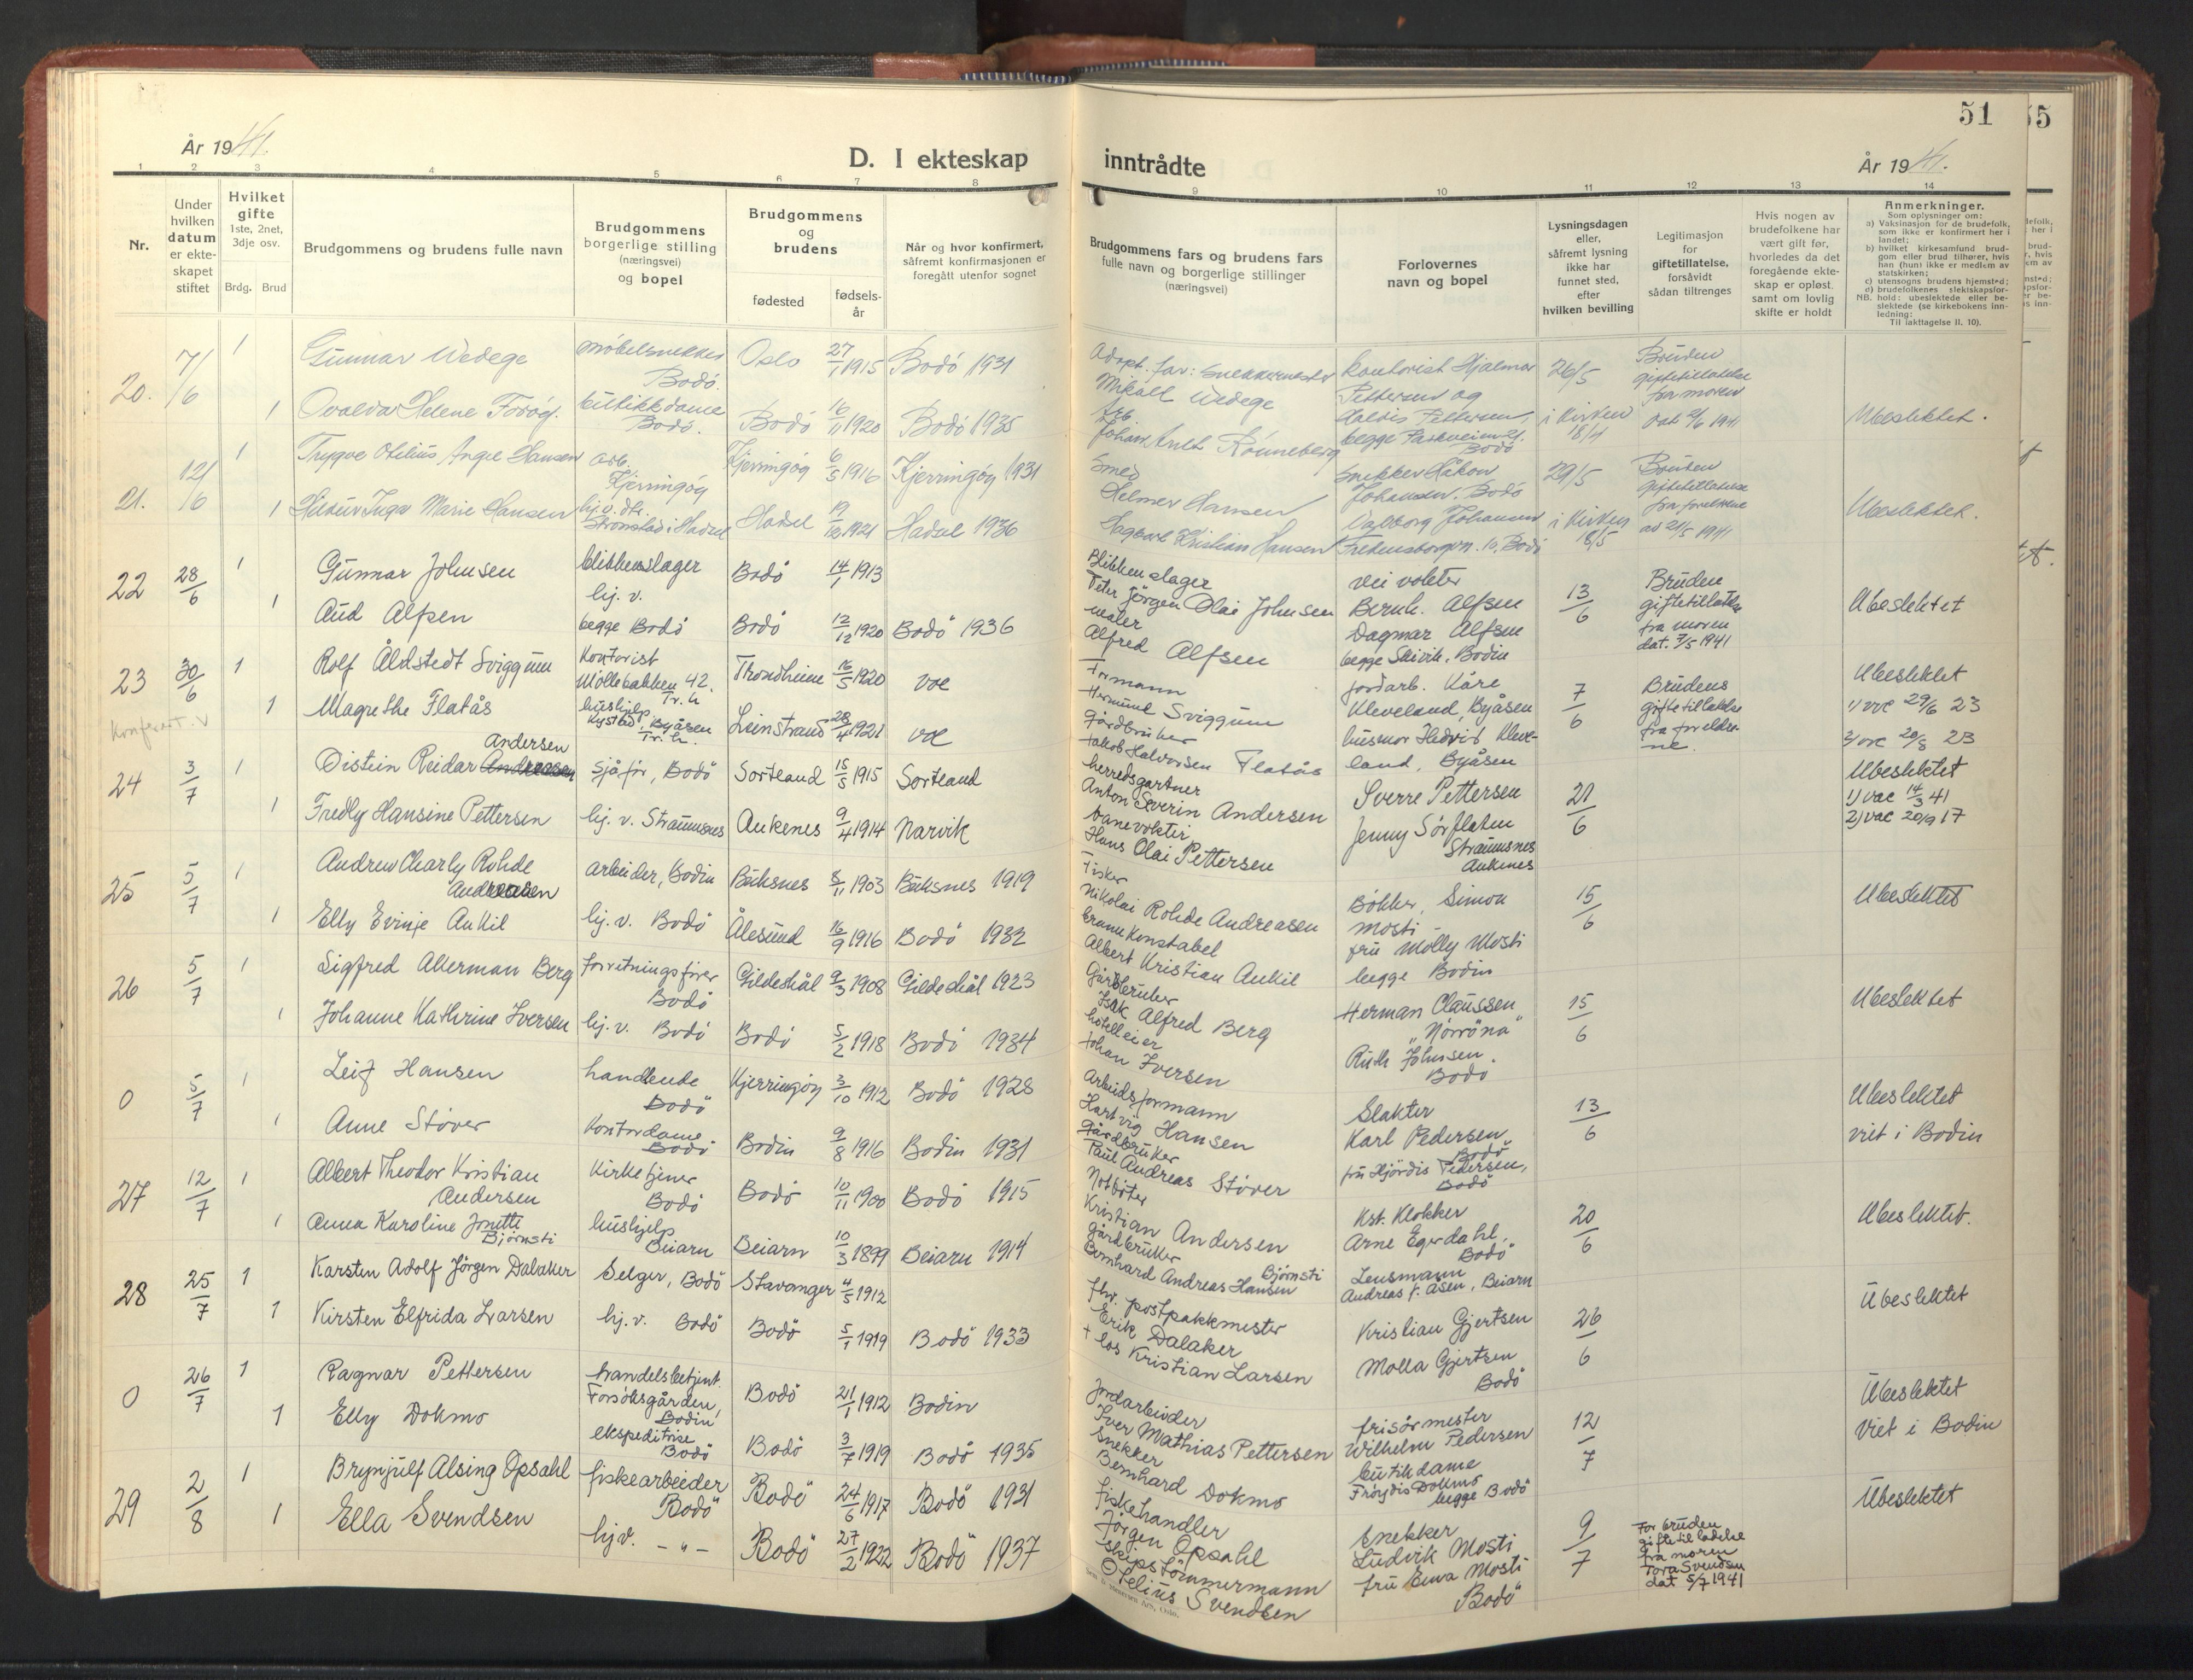 51
55
År 1941.
D. I ekteskap
inntrådte
År 1941.
1 2 3 4 5 6 7 8 9 10 11 12 13 14
Nr.
Under hvilken datum er ekte-skapet stiftet
Hvilket gifte 1ste, 2net, 3dje osv.
Brdg. Brud
Brudgommens og brudens fulle navn
Brudgommens borgerlige stilling (næringsvei) og bopel
Brudgommens og brudens
fødested
fødsels-år
Når og hvor konfirmert, såfremt konfirmasjonen er foregått utenfor sognet
Brudgommens fars og brudens fars fulle navn og borgerlige stillinger (næringsvei)
Forlovernes navn og bopel
Lysningsdagen eller, såfremt lysning ikke har funnet sted, efter hvilken bevilling
Legitimasjon for giftetillatelse, forsåvidt sådan tiltrenges
Hvis nogen av brudefolkene har vært gift før, hvorledes da det foregående ekte-skap er opløst, samt om lovlig skifte er holdt
Anmerkninger.
Som oplysninger om:
a) Vaksinasjon for de brudefolk, som ikke er konfirmert her i landet;
b) hvilket kirkesamfund brud-gom eller brud tilhører, hvis han (hun) ikke er medlem av statskirken;
c) utensogns brudens hjemsted;
d) brudefolkenes slektskapsfor-hold: ubeslektede eller be-slektede (se kirkebokens inn-ledning:
NB. Til iakttagelse II. 10).
20. 7/6 1 Gunnar Wedege møbelsnekker Bodö. Oslo 27/1 1915 Bodö 1931
Adopt. far: Snekkermester Mikall Wedege
kontorist Hjalmar Pettersen og
26/5
Bruden giftetillatelse fra moren dat 2/6 1941
Ubeslektet.
1 Ovalda Helene Forög. butikkdame Bodö. Bodö 16/11 1920 Bodö 1935
Arb. Johan Arnt Rönneberg
Pettersen, begge Parkveien 21. Bodö
i kirken 18/4
21. 12/6 1 Trygve Otelius Angre Hansen arb. Kjerringöy Kjerringöy 6/5 1916 Kjerringöy 1931
Smed Helmer Hansen
Snekker Håkon Johansen, Bodö
29/5
Bruden giftetillatelse fra foreldrene av 21/5 1941
Ubeslektet.
1 Hildur Inga Marie Hansen hj. v. dtr. i Hadsel Hadsel 19/10 1921 Hadsel 1936
Hagbart Kristian Hansen
Valborg Johansen Fredensborgvn. 10, Bodö
i kirken 18/5
22 28/6 1 Gunnar Johnsen blikkenslager Bodö 14/1 1913
Blikkenslager Peter Jörgen Olai Johnsen
Veivokter Bernh. Alfsen
13/6
Bruden giftetillatelse fra moren dat. 7/5 1941
Ubeslektet
1 Aud Alfsen hj. v. begge Bodö Bodö 12/12 1920 Bodö 1936
maler Alfred Alfsen
Dagmar Alfsen begge Skivik, Bodin
23 30/6 1 Rolf Åldstedt Sviggum Kontorist Möllebakken 42. Tr.h Trondheim 16/5 1920 voe
Formann Hermund Sviggum
jordarb. Kåre Kleveland, Byåsen
7/6
Brudens giftetillatelse fra foreldre-ne.
Ubeslektet
1) vac 29/6 23
2) vac 20/8 23
Konfirert. v
1 Magrethe Flatås hushjelp Kystad, Byåsen Tr.h. Leinstrand 28/4 1921 voe
Gårdbruker Jakob Halvorsen Flatås
husmor Hedvig Kleve-land, Byåsen
24 3/7 1 Oistein Reidar Andersen sjåför, Bodö Sortland 15/5 1915 Sortland
herredsgartner Anton Severin Andersen
Sverre Pettersen
21/6
Ubeslektet
1) vac 14/3 41
2) vac 20/9 17
1 Fredly Hansine Pettersen hj. v. Straumsnes Ankenes 9/4 1914 Narvik
banevokter Hans Olai Pettersen
Jenny Sörfleten Straumsnes Ankenes
25 5/7 1 Andrew Charly Rohde Andreasen arbeider, Bodin Buksnes 8/11 1903 Buksnes 1919
Fisker Nikolai Rohde Andreasen
Bökker Simon Mosti
15/6
Ubeslektet
1 Elly Evinje Ankil hj. v. Bodö Ålesund 16/9 1916 Bodö 1932
brannkonstabel Albert Kristian Ankil
fru Molly Mosti begge Bodin
26 5/7 1 Sigfred Allerman Berg forretningsförer Bodö Gildeskål 9/3 1908 Gildeskål 1923
Gårdbruker Isak Alfred Berg
Herman Claussen "Norröna"
15/6
Ubeslektet
1 Johanne Kathrine Iversen hj. v. Bodö Bodö 5/2 1918 Bodö 1934
hotelleier Johan Iversen
Ruth Johnsen. Bodö
0 5/7 1 Leif Hansen handlende Bodö Kjerringöy 3/10 1912 Bodö 1928
Arbeidsformann Hartvig Hansen
Slakter Karl Pedersen Bodö
13/6
Ubeslektet
viet i Bodin
1 Anne Stöver Kontordame Bodö Bodin 9/8 1916 Bodin 1931
Gårdbruker Paul Andreas Stöver
fru Hjördis Pedersen, Bodö
27 12/7 1 Albert Theodor Kristian Andersen Kirketjener Bodö Bodö 10/11 1900 Bodö 1915
Notböter Kristian Andersen
Kst. Klokker Arne Egerdahl, Bodö
20/6
Ubeslektet.
1 Anna Karoline Jonette Björnsti hushjelp Beiarn Beiarn 10/3 1899 Beiarn 1914
gårdbruker Bernhard Andreas Hansen Björnsti
Lensmann Andreas F. Åsen, Beiarn
28 25/7 1 Karsten Adolf Jörgen Dalaker Selger, Bodö Stavanger 4/5 1912
fhv. postpakkmester Erik Dalaker
Kristian Gjertsen
26/6
Ubeslektet
1 Kirsten Elfrida Larsen hj. v. Bodö Bodö 5/1 1919 Bodö 1933
+ los Kristian Larsen
Molla Gjertsen Bodö
0 26/7 1 Ragnar Pettersen handelsbetjent. Forsöksgården, Bodin Bodö 21/1 1912 Bodin
Jordarbeider Iver Mathias Pettersen
frisörmester Wilhelm Pedersen
12/7
Ubeslektet
Viet i Bodin
1 Elly Dokmo ekspeditrise Bodö Bodö 3/7 1919 Bodö 1935
Snekker Bernhard Dokmo
butikdame Fröydis Dokmo begge Bodö
29 2/8 1 Brynjulf Alsing Opsahl fiskearbeider Bodö Bodö 24/6 1917 Bodö 1931
fiskehandler Jörgen Opsahl
Snekker Ludvik Mosti
9/7
For bruden giftetilladelse fra moren Tora Svendsen dat 5/7 1941
Ubeslektet
1 Ella Svendsen hj v. - " - Bodö 27/2 1922 Bodö 1937
skipstömmermann Otelius Svendsen
fru Enva Mosti Bodö